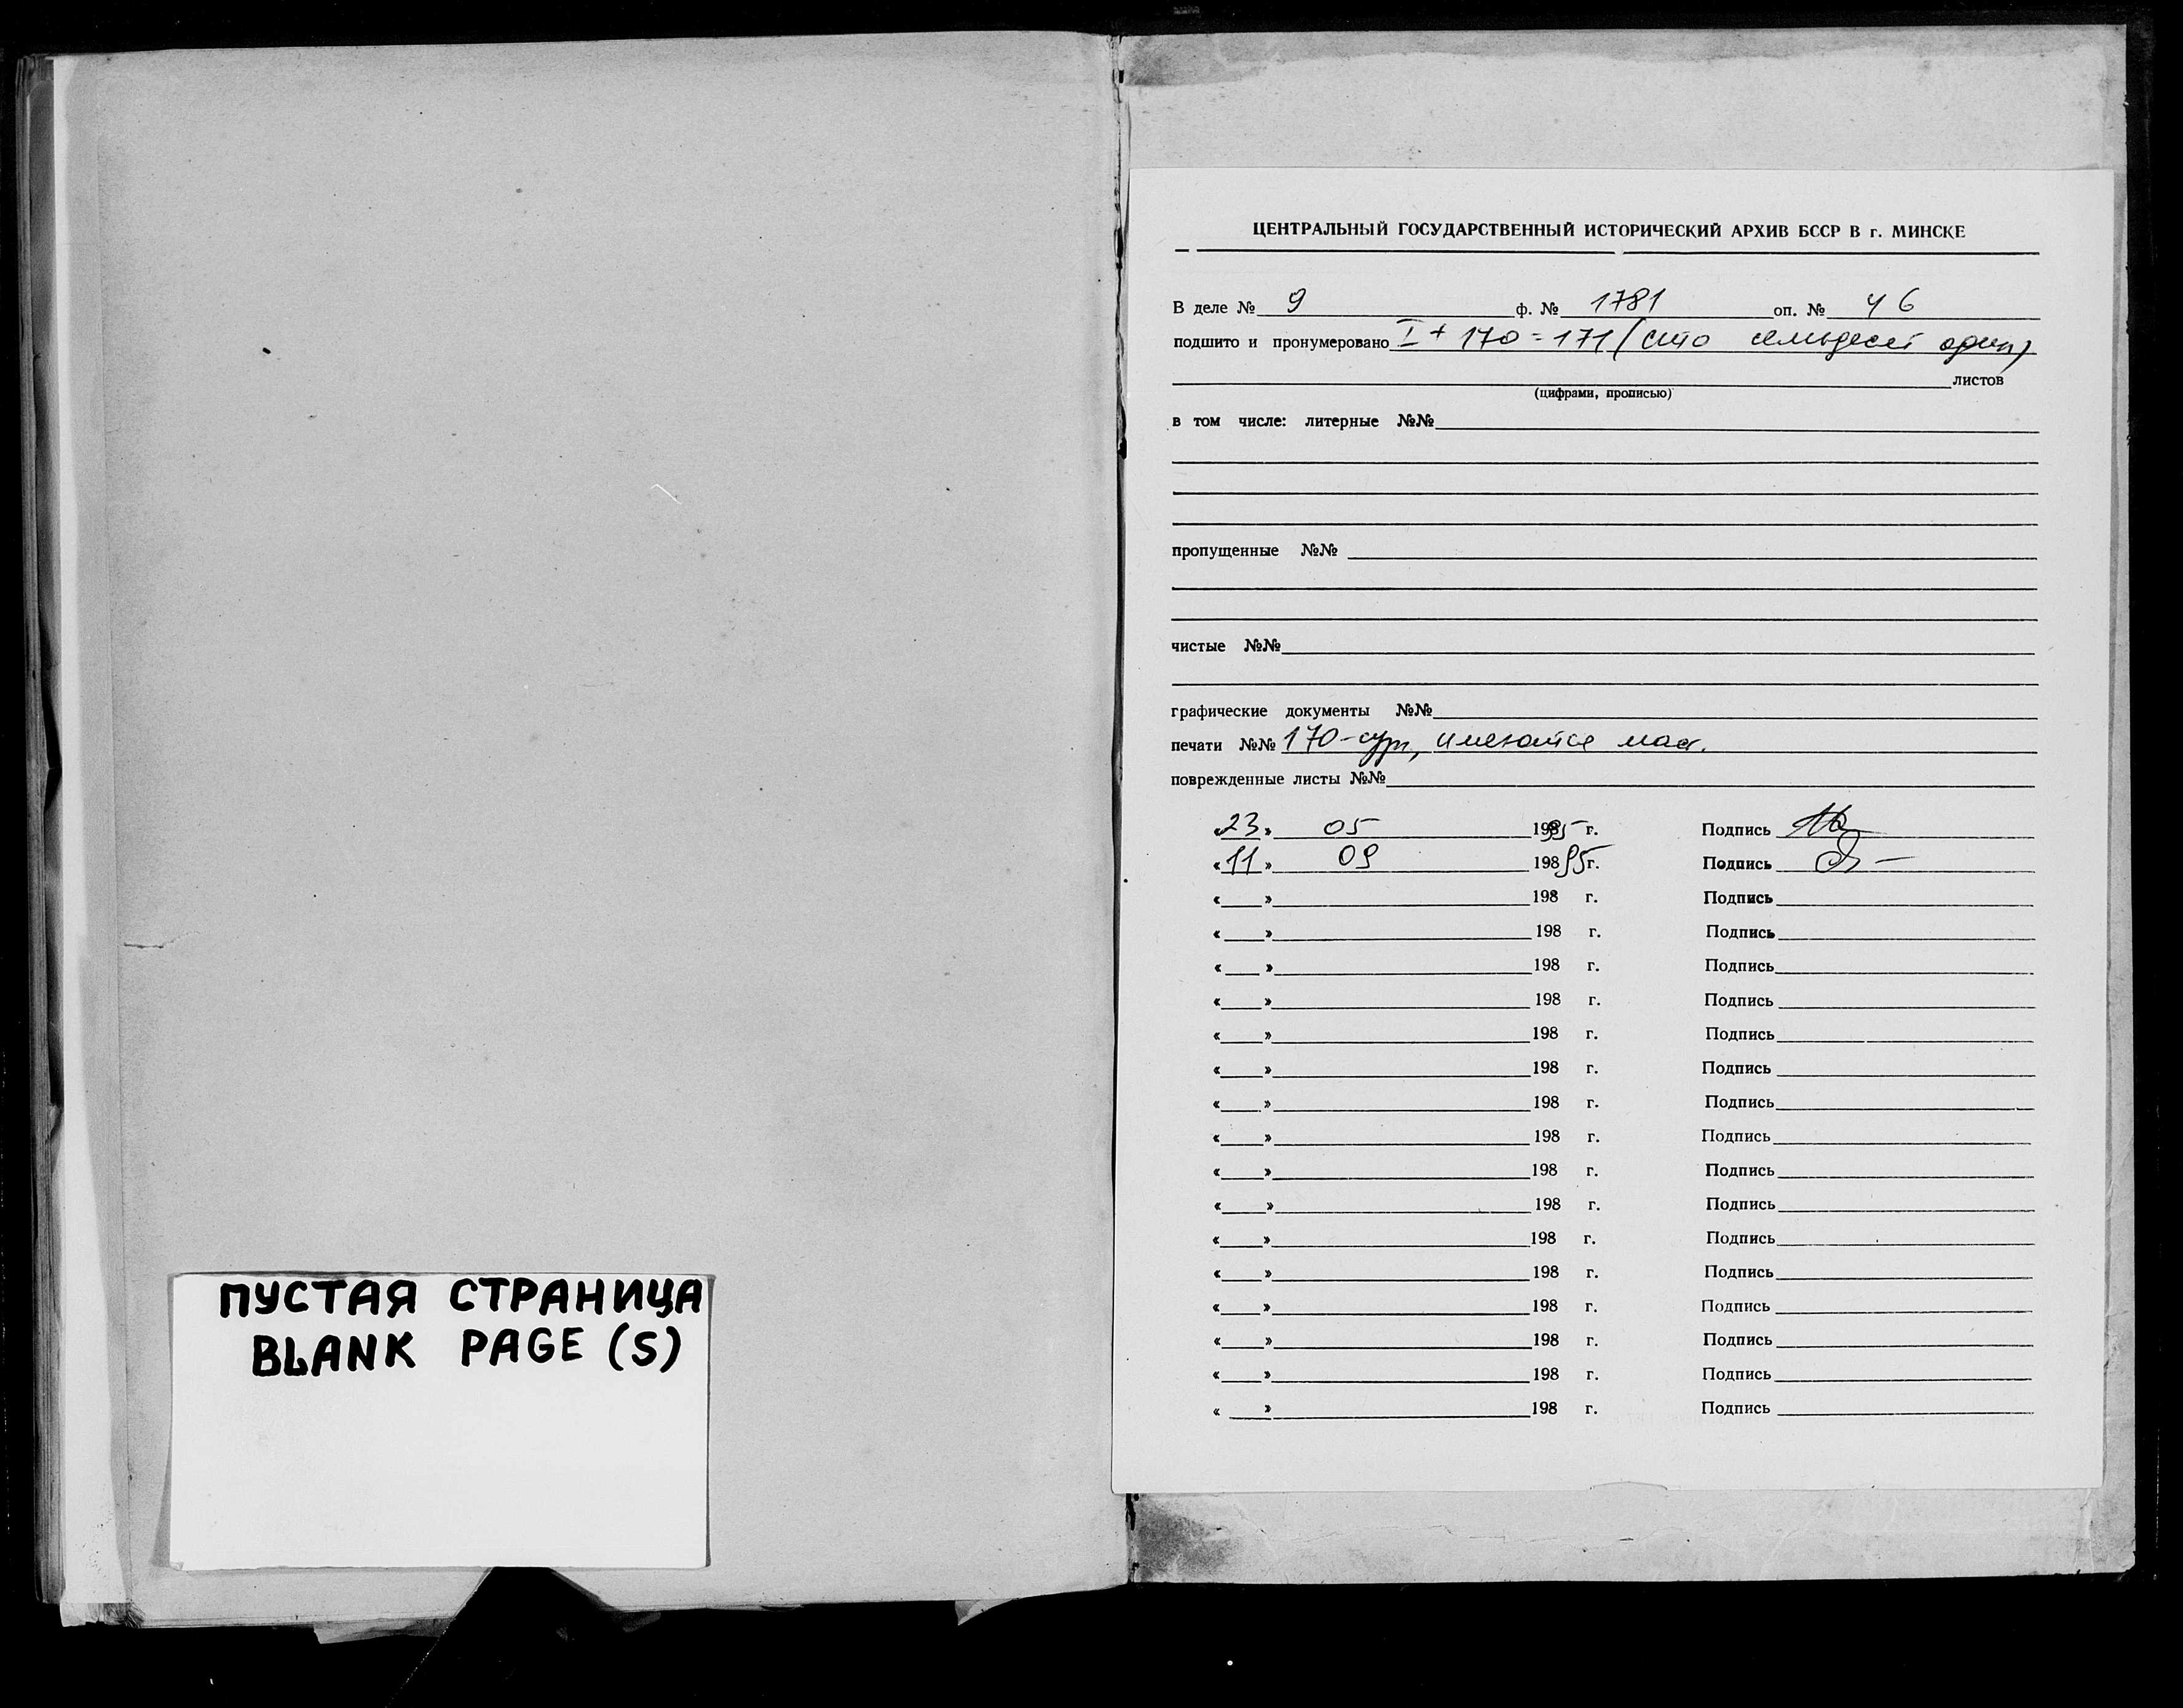 ПУСТАЯ СТРАНИЦА
BLANK PAGE (S)
ЦЕНТРАЛЬНЫЙ ГОСУДАРСТВЕННЫЙ ИСТОРИЧЕСКИЙ АРХИВ БССР В г. МИНСКЕ
В деле № 9 ф. № 1781 оп. № 46
подшито и пронумеровано I + 170 = 171 (сто семьдесят один)
листов
(цифрами, прописью)
в том числе: литерные №№
пропущенные №№
чистые №№
графические документы №№
печати №№ 170-сург, имеются мас.
поврежденные листы №№
«23» 05 1995 г. Подпись
«11» 09 198 95 г. Подпись
« » 198 г. Подпись
« » 198 г. Подпись
« » 198 г. Подпись
« » 198 г. Подпись
« » 198 г. Подпись
« » 198 г. Подпись
« » 198 г. Подпись
« » 198 г. Подпись
« » 198 г. Подпись
« » 198 г. Подпись
« » 198 г. Подпись
« » 198 г. Подпись
« » 198 г. Подпись
« » 198 г. Подпись
« » 198 г. Подпись
« » 198 г. Подпись